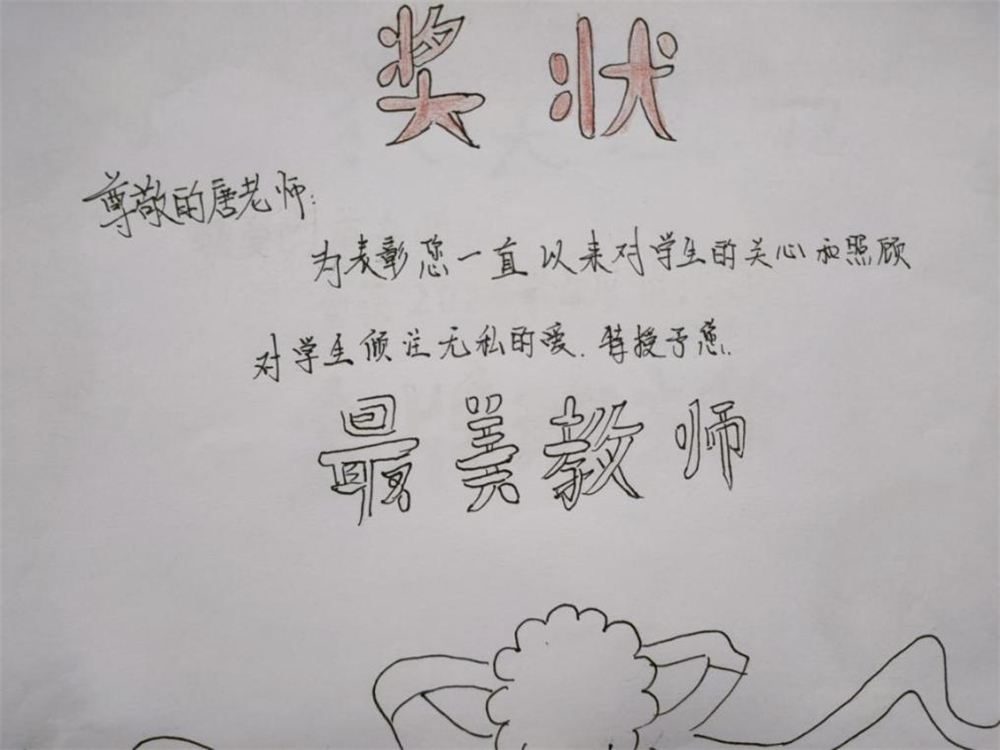 奖状
尊敬的唐老师:
为表彰您一直以来对学生的关心和照顾
对学生倾注无私的爱.特授予您.
最美教师